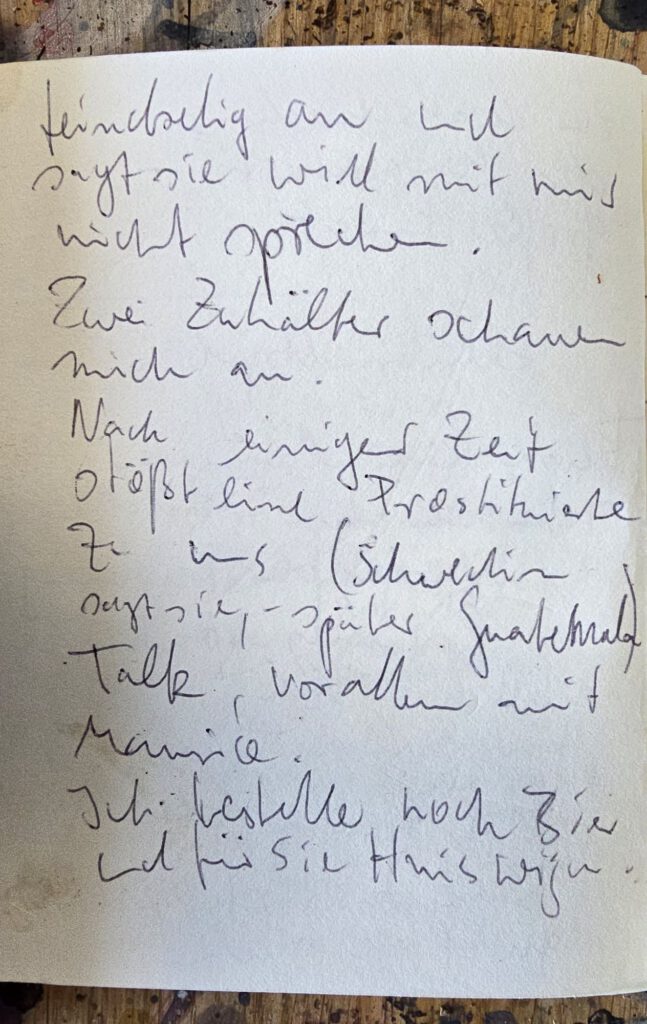 feindselig an und
sagt sie will mit mir
nicht sprechen.
Zwei Zuhälter schauen
mich an.
Nach einiger Zeit
stößt eine Prostituierte
zu uns (Schwedin
sagt sie, - später Guatemala)
Talk, vorallem mit
Maurice.
Ich bestelle noch Bier
und für Sie Huiswijn.